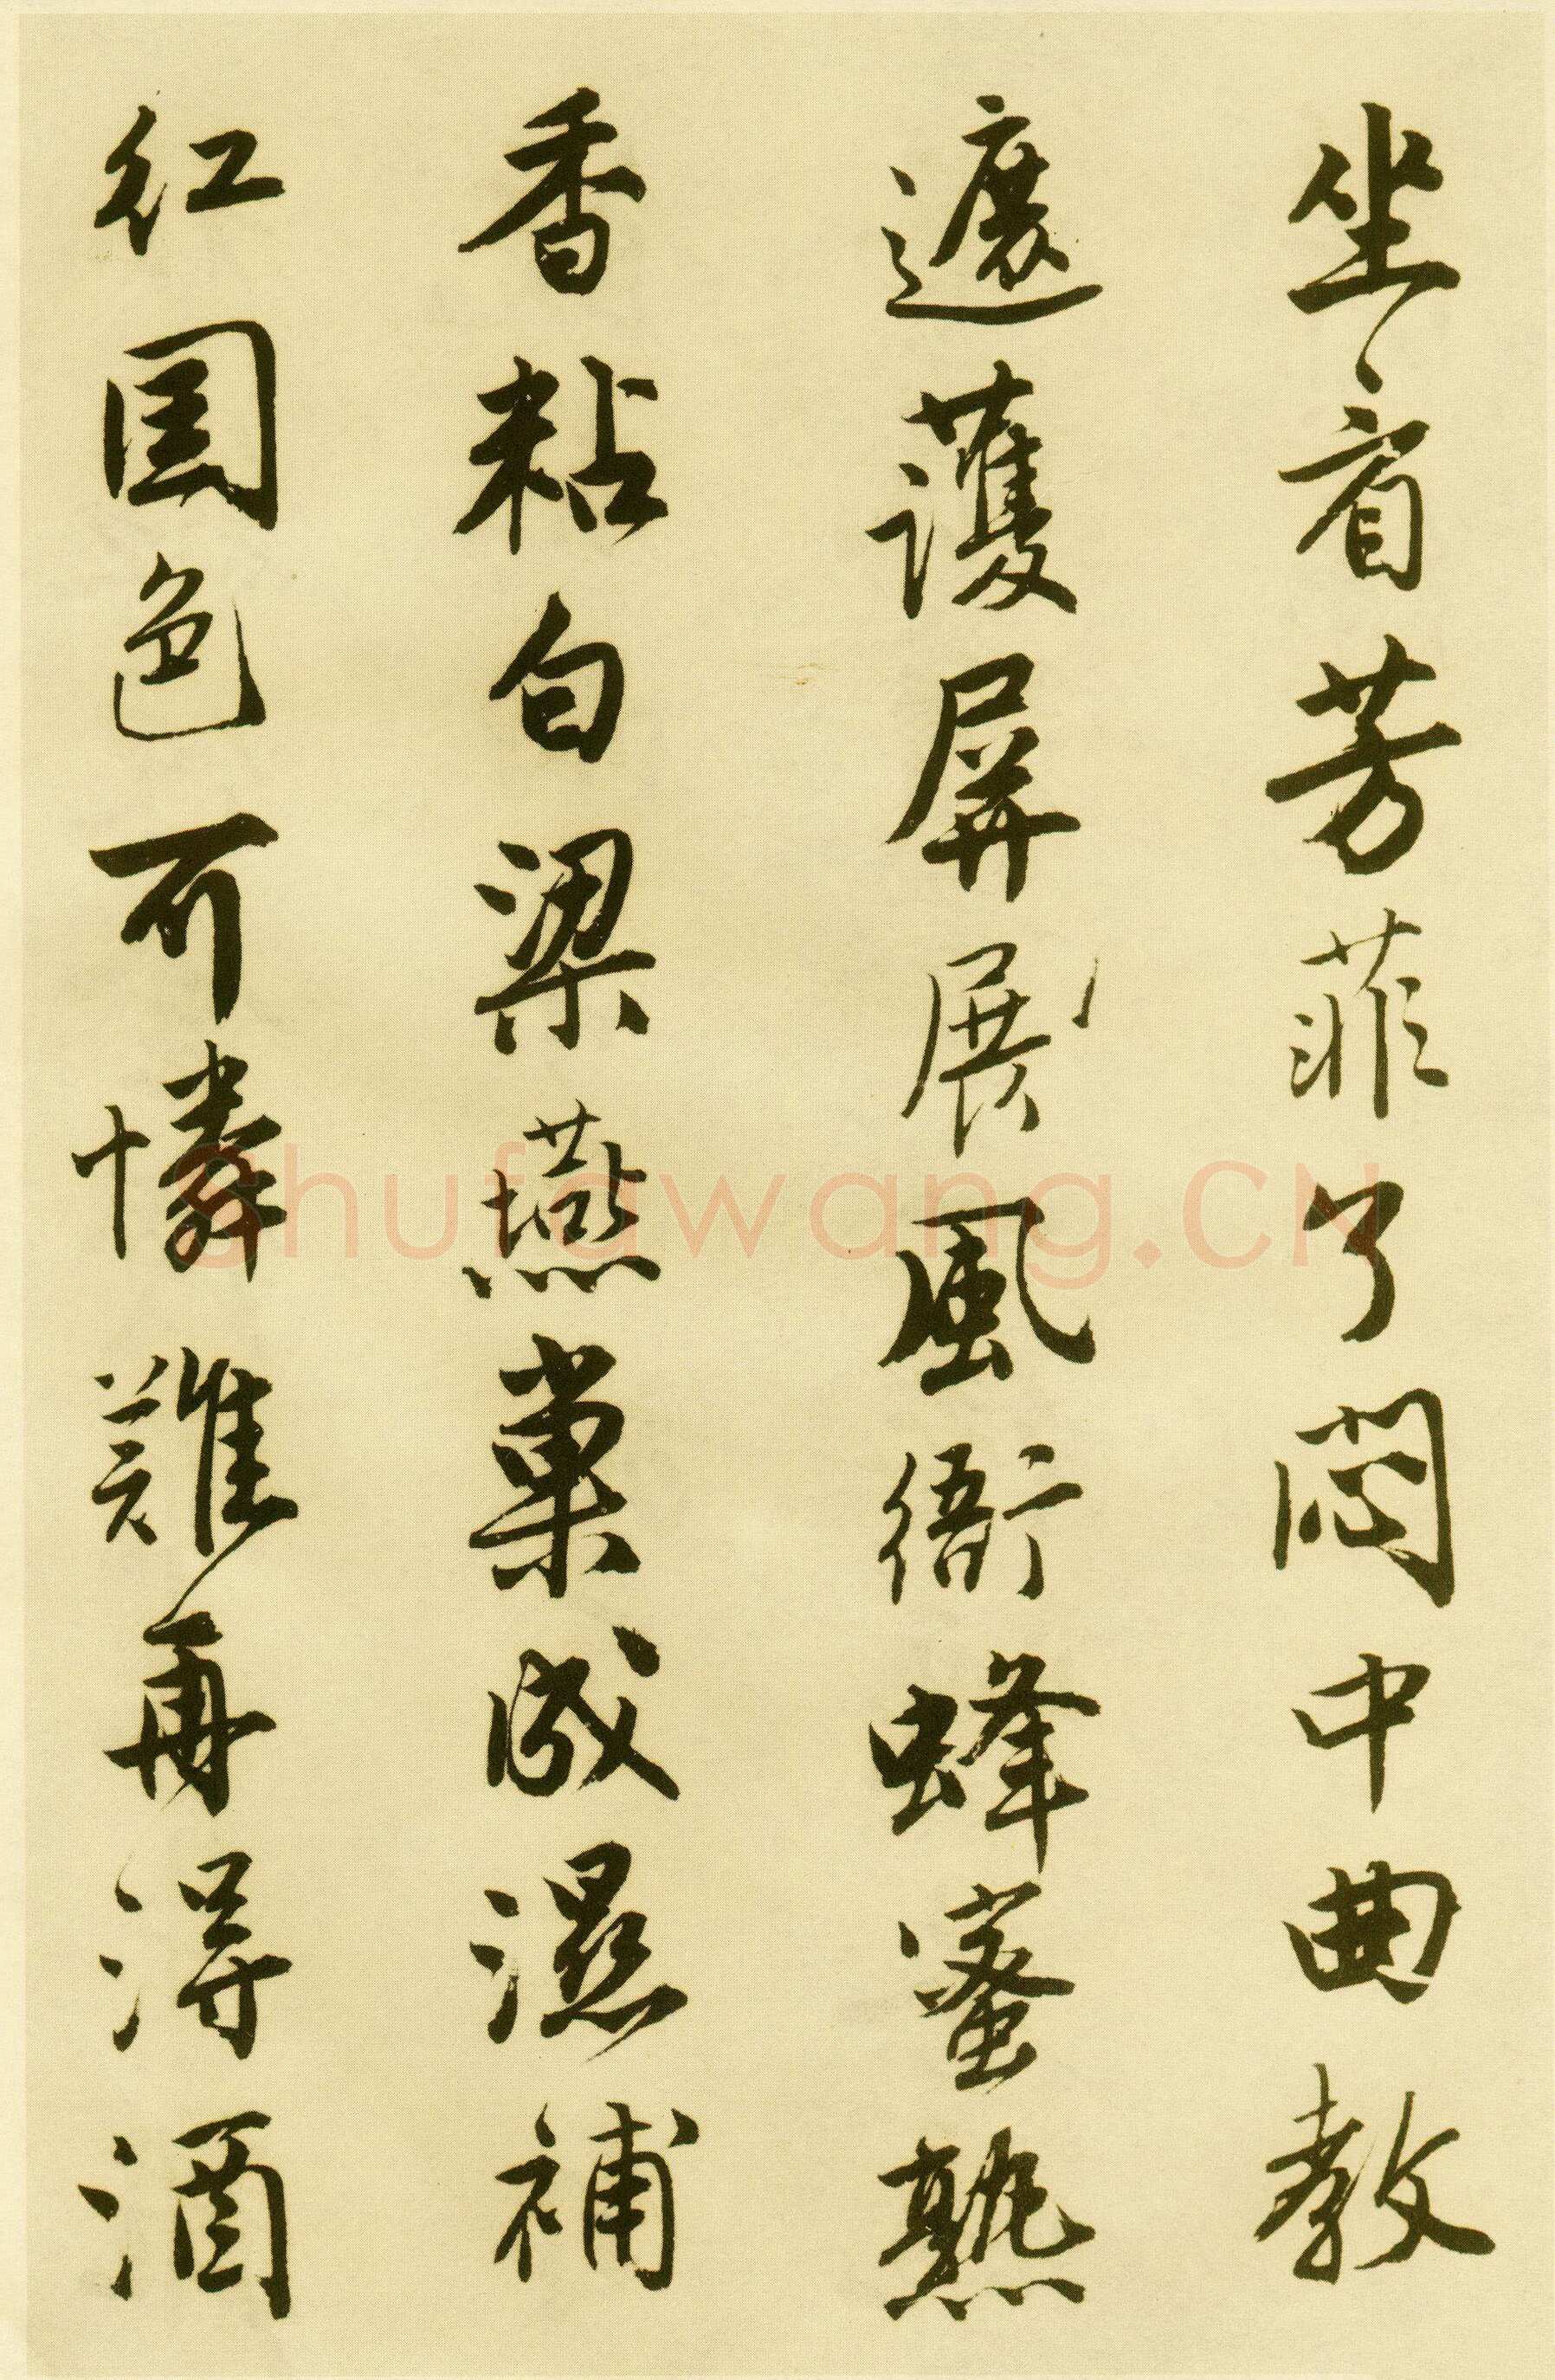 坐看芳菲了悶中曲教
遮護屏展風衙蜂蜜熟
香粘白梁燕巢成濕補
紅囯色可憐難再得酒
Shufawang.CN